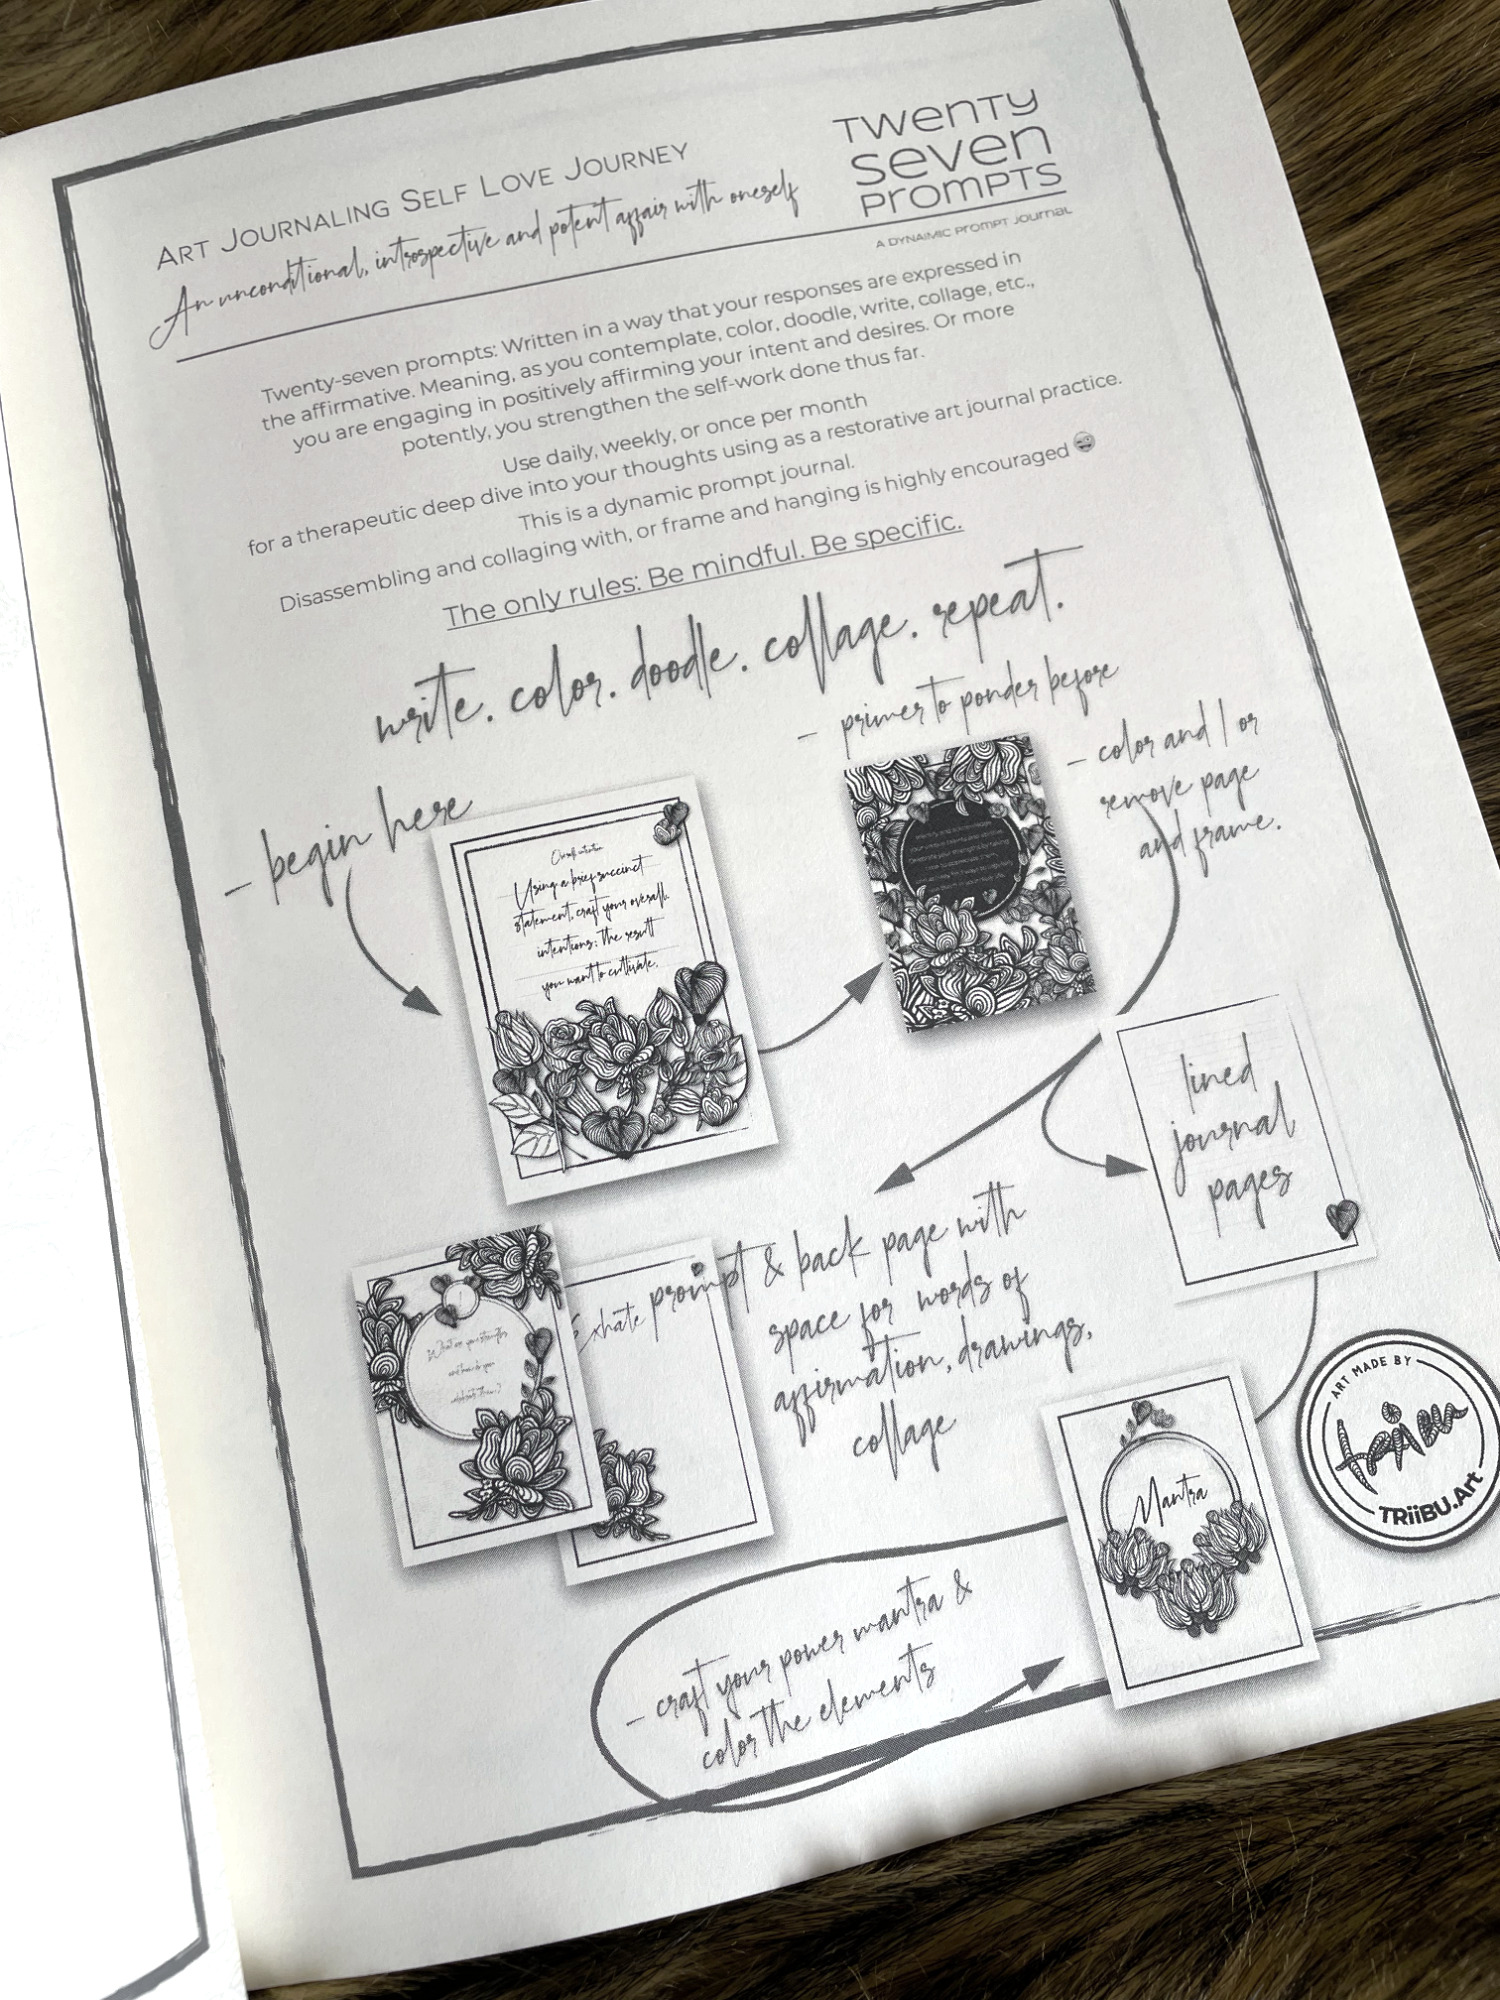 ART JOURNALING SELF LOVE JOURNEY
An unconditional, introspective and potent affair with oneself
TWENTY
SEVEN
PROMPTS
A DYNAIMIC PROMPT JOURNAL
Twenty-seven prompts: Written in a way that your responses are expressed in
the affirmative. Meaning, as you contemplate, color, doodle, write, collage, etc.,
you are engaging in positively affirming your intent and desires. Or more
potently, you strengthen the self-work done thus far.
Use daily, weekly, or once per month
for a therapeutic deep dive into your thoughts using as a restorative art journal practice.
This is a dynamic prompt journal.
Disassembling and collaging with, or frame and hanging is highly encouraged 😜
The only rules: Be mindful. Be specific.
write. color. doodle. collage. repeat.
– begin here
– primer to ponder before
– color and / or
remove page
and frame.
Using a brief succinct
statement, craft your overall
intentions; the result
you want to cultivate.
lined
journal
pages
prompt & back page with
space for words of
affirmation, drawings,
collage
What are your strengths
and how do you
celebrate them?
Exhale
Mantra
– craft your power mantra &
color the elements
ART MADE BY
triibu
TRiiBU.Art